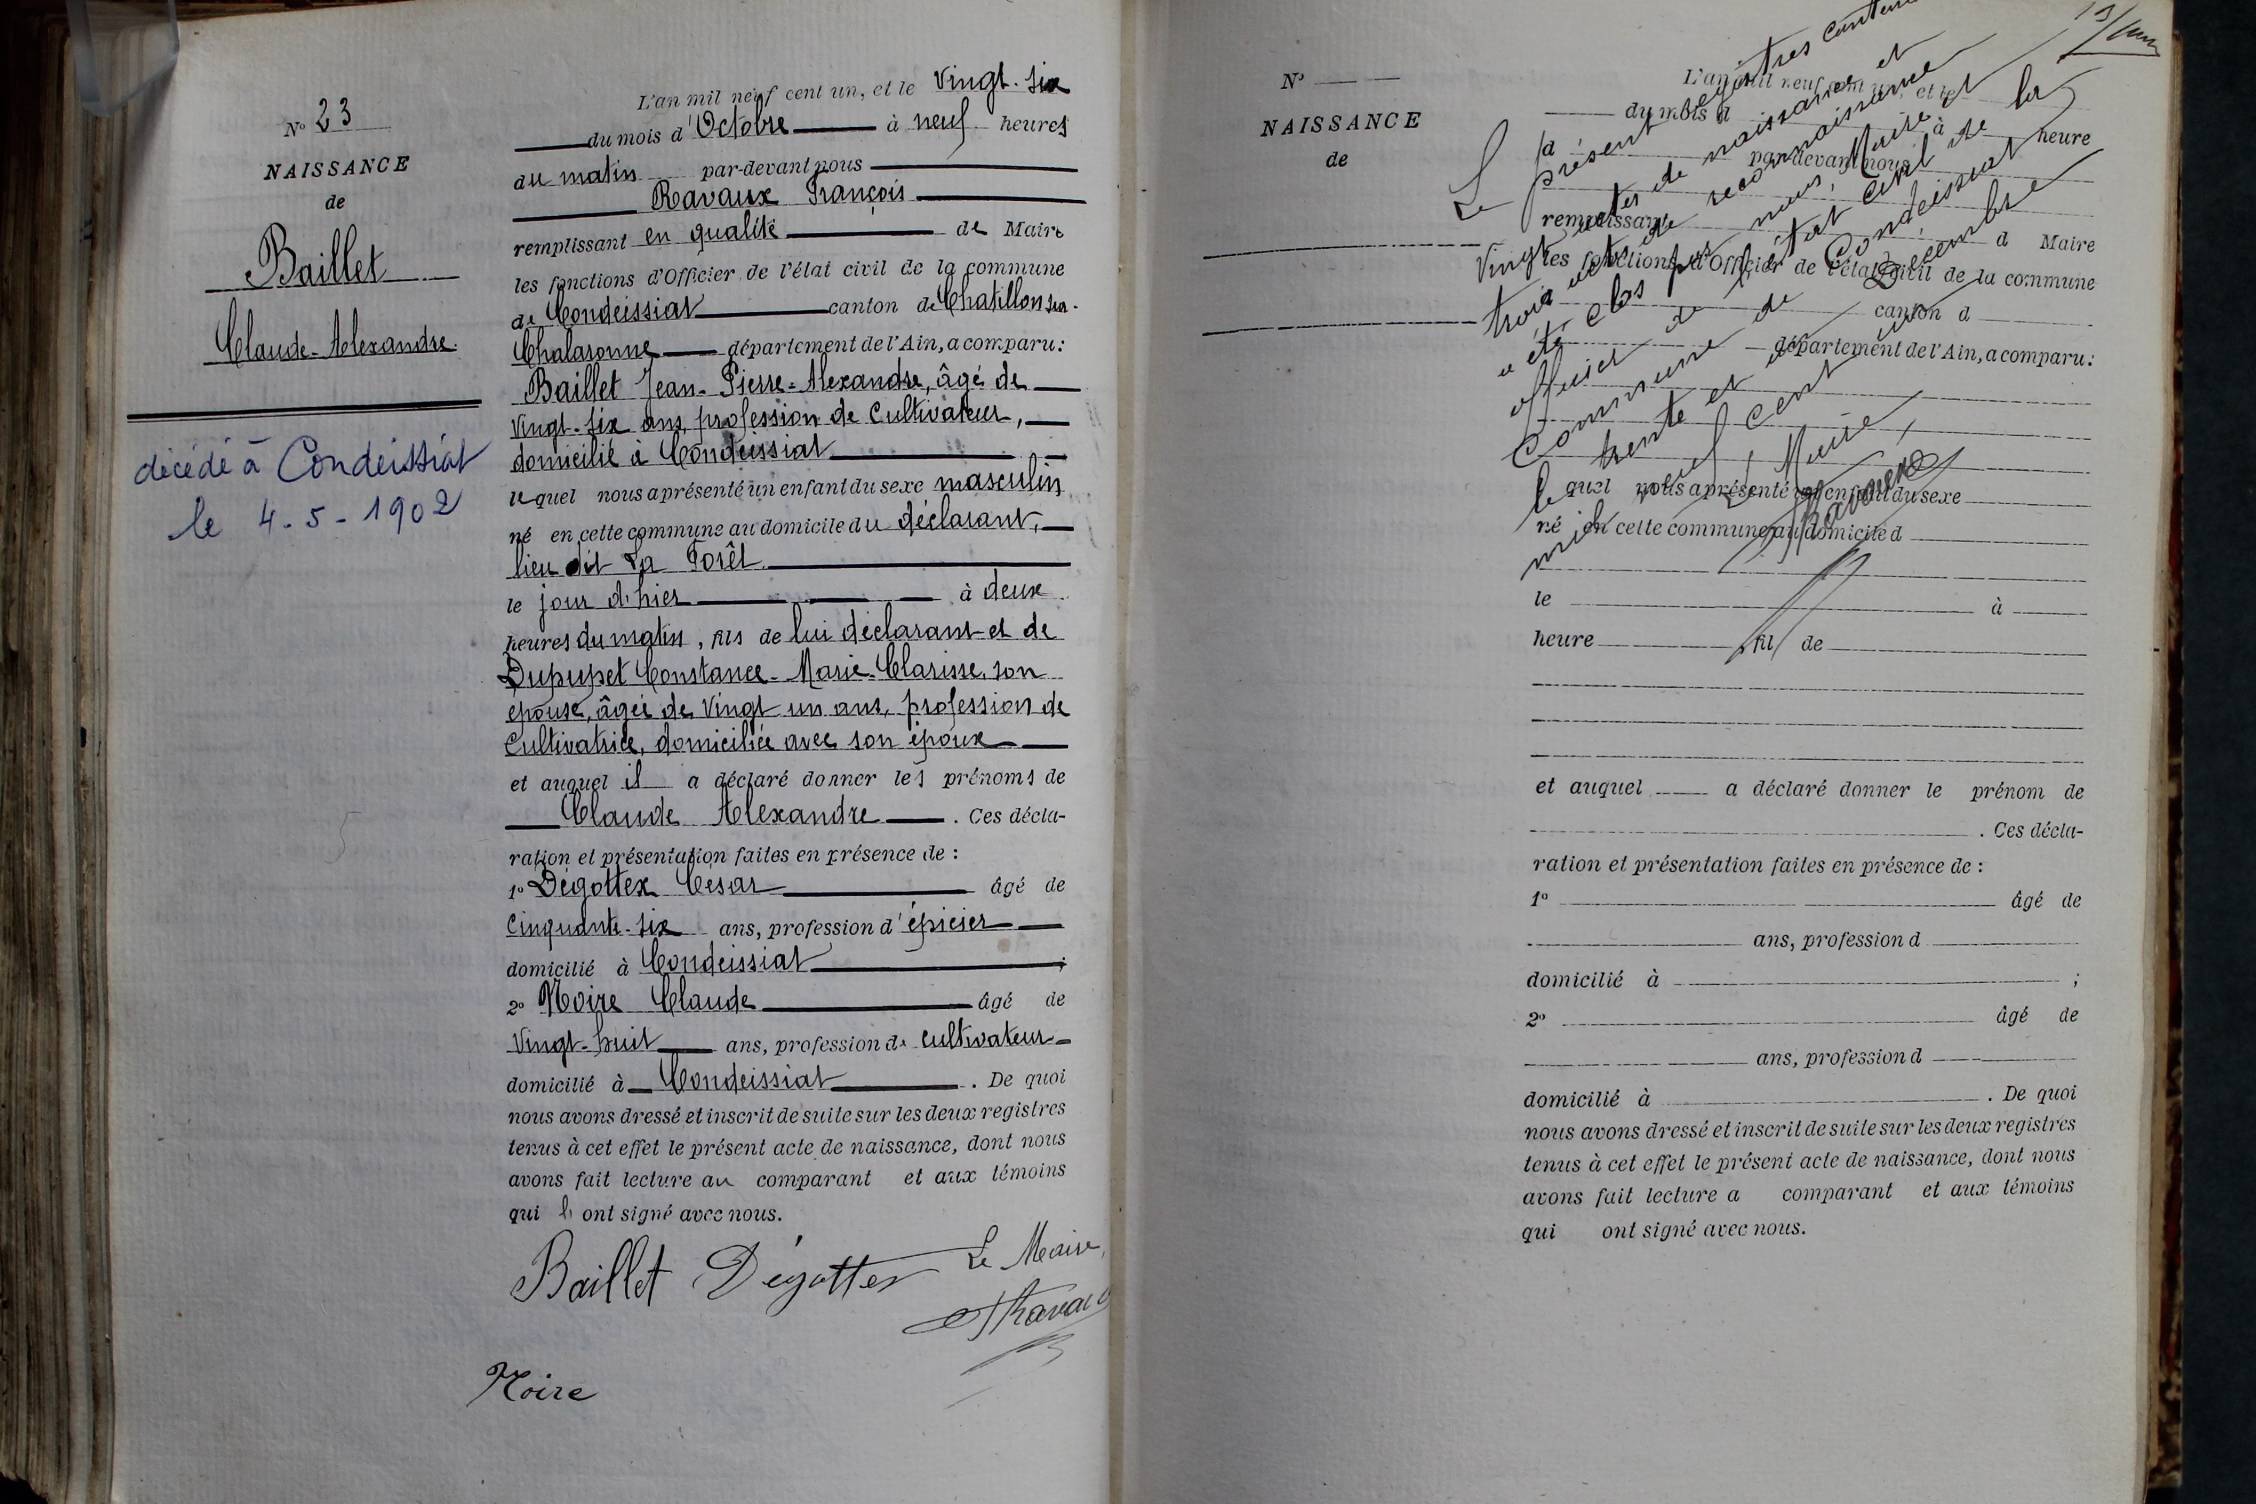 N° 23
NAISSANCE
de
Baillet
Claude-Alexandre.
décédé à Condeissiat
le 4-5-1902
L'an mil neuf cent un, et le Vingt-six
du mois d'Octobre à neuf heures
du matin par-devant nous
Ravaux François
remplissant en qualité de Maire
les fonctions d'Officier de l'état civil de la commune
de Condeissiat canton de Chatillon sur-
Chalaronne département de l'Ain, a comparu:
Baillet Jean-Pierre-Alexandre, âgé de
Vingt-six ans, profession de Cultivateur,
domicilié à Condeissiat
lequel nous a présenté un enfant du sexe masculin
né en cette commune au domicile du déclarant,
lieu dit La Forêt
le jour d'hier à deux
heures du matin, fils de lui déclarant et de
Dupupet Constance-Marie-Clarisse, son
épouse, âgée de Vingt un ans, profession de
Cultivatrice, domiciliée avec son époux
et auquel il a déclaré donner les prénoms de
Claude Alexandre. Ces décla-
ration et présentation faites en présence de :
1° Dégottex César âgé de
Cinquante-six ans, profession d'épicier
domicilié à Condeissiat ;
2° Noire Claude âgé de
Vingt-huit ans, profession de cultivateur
domicilié à Condeissiat. De quoi
nous avons dressé et inscrit de suite sur les deux registres
tenus à cet effet le présent acte de naissance, dont nous
avons fait lecture au comparant et aux témoins
qui ont signé avec nous.
Baillet Dégottex Le Maire,
Ravaux
Noire
N°
NAISSANCE
de
L'an mil neuf cent un, et le
du mois d à heure
par-devant nous
remplissant d Maire
les fonctions d'Officier de l'état civil de la commune
canton d
département de l'Ain, a comparu:
lequel nous a présenté un enfant du sexe
né en cette commune au domicile d
le à
heure, fil de
et auquel a déclaré donner le prénom de
. Ces décla-
ration et présentation faites en présence de :
1° âgé de
ans, profession d
domicilié à ;
2° âgé de
ans, profession d
domicilié à . De quoi
nous avons dressé et inscrit de suite sur les deux registres
tenus à cet effet le présent acte de naissance, dont nous
avons fait lecture a comparant et aux témoins
qui ont signé avec nous.
Le présent registres contenant
Vingt actes de naissance et
trois actes de reconnaissance
a été clos par nous, Maire et
officier de l'état civil de la
Commune de Condeissiat
le trente et un Décembre
mil neuf cent un
Le Maire,
Ravaux